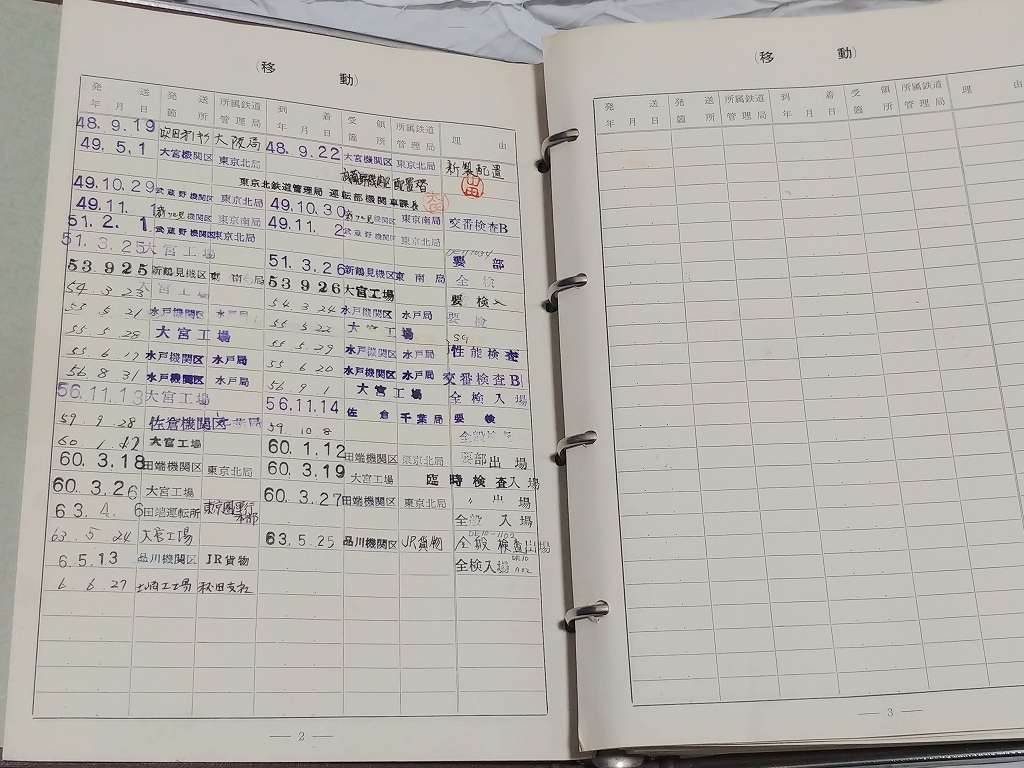 (移 動)
発 送 年 月 日 発 送 箇 所 所属鉄道管理局 到 着 年 月 日 受 領 箇 所 所属鉄道管理局 理 由
48.9.19 大阪局 48.9.22 大宮機関区 東京北局 新製配置
49.5.1 大宮機関区 東京北局 配置替
東京北鉄道管理局 運転部機関車課長
49.10.29 武蔵野機関区 東京北局 49.10.30 新鶴見機関区 東京南局 交番検査B
49.11.1 新鶴見機関区 東京南局 49.11.2 武蔵野機関区 東京北局
51.2.1 武蔵野機関区 東京北局
51.3.25 大宮工場 51.3.26 新鶴見機関区 東 南 局 要 部
53.9.25 新鶴見機関区 東 南 局 53.9.26 大宮工場 全 検
54.3.23 大宮工場 54.3.24 水戸機関区 水戸局 要 検 入
55.5.21 水戸機関区 水戸局 55.5.22 大宮工場 要 検
55.5.28 大宮工場 55.5.29 水戸機関区 水戸局 性能検査
55.6.17 水戸機関区 水戸局 55.6.20 水戸機関区 水戸局 交番検査B
56.8.31 水戸機関区 水戸局 56.9.1 大宮工場 全検入場
56.11.13 大宮工場 56.11.14 佐 倉 千葉局 要 検
59.9.28 佐倉機関区 千葉局 59.10.8 全般検査
60.1.12 大宮工場 60.1.12 田端機関区 東京北局 要部出場
60.3.18 田端機関区 東京北局 60.3.19 大宮工場 臨時検査入場
60.3.26 大宮工場 60.3.27 田端機関区 東京北局 〃 出 場
63.4.6 田端運転所 東京圏運行本部 全般 入 場
63.5.24 大宮工場 63.5.25 品川機関区 JR貨物 DE10-1102 全般検査出場
6.5.13 品川機関区 JR貨物 全検入場 DE10 1102
6.6.27 土崎工場 秋田支社
― 2 ―
(移 動)
発 送 年 月 日 発 送 箇 所 所属鉄道管理局 到 着 年 月 日 受 領 箇 所 所属鉄道管理局 理 由
― 3 ―